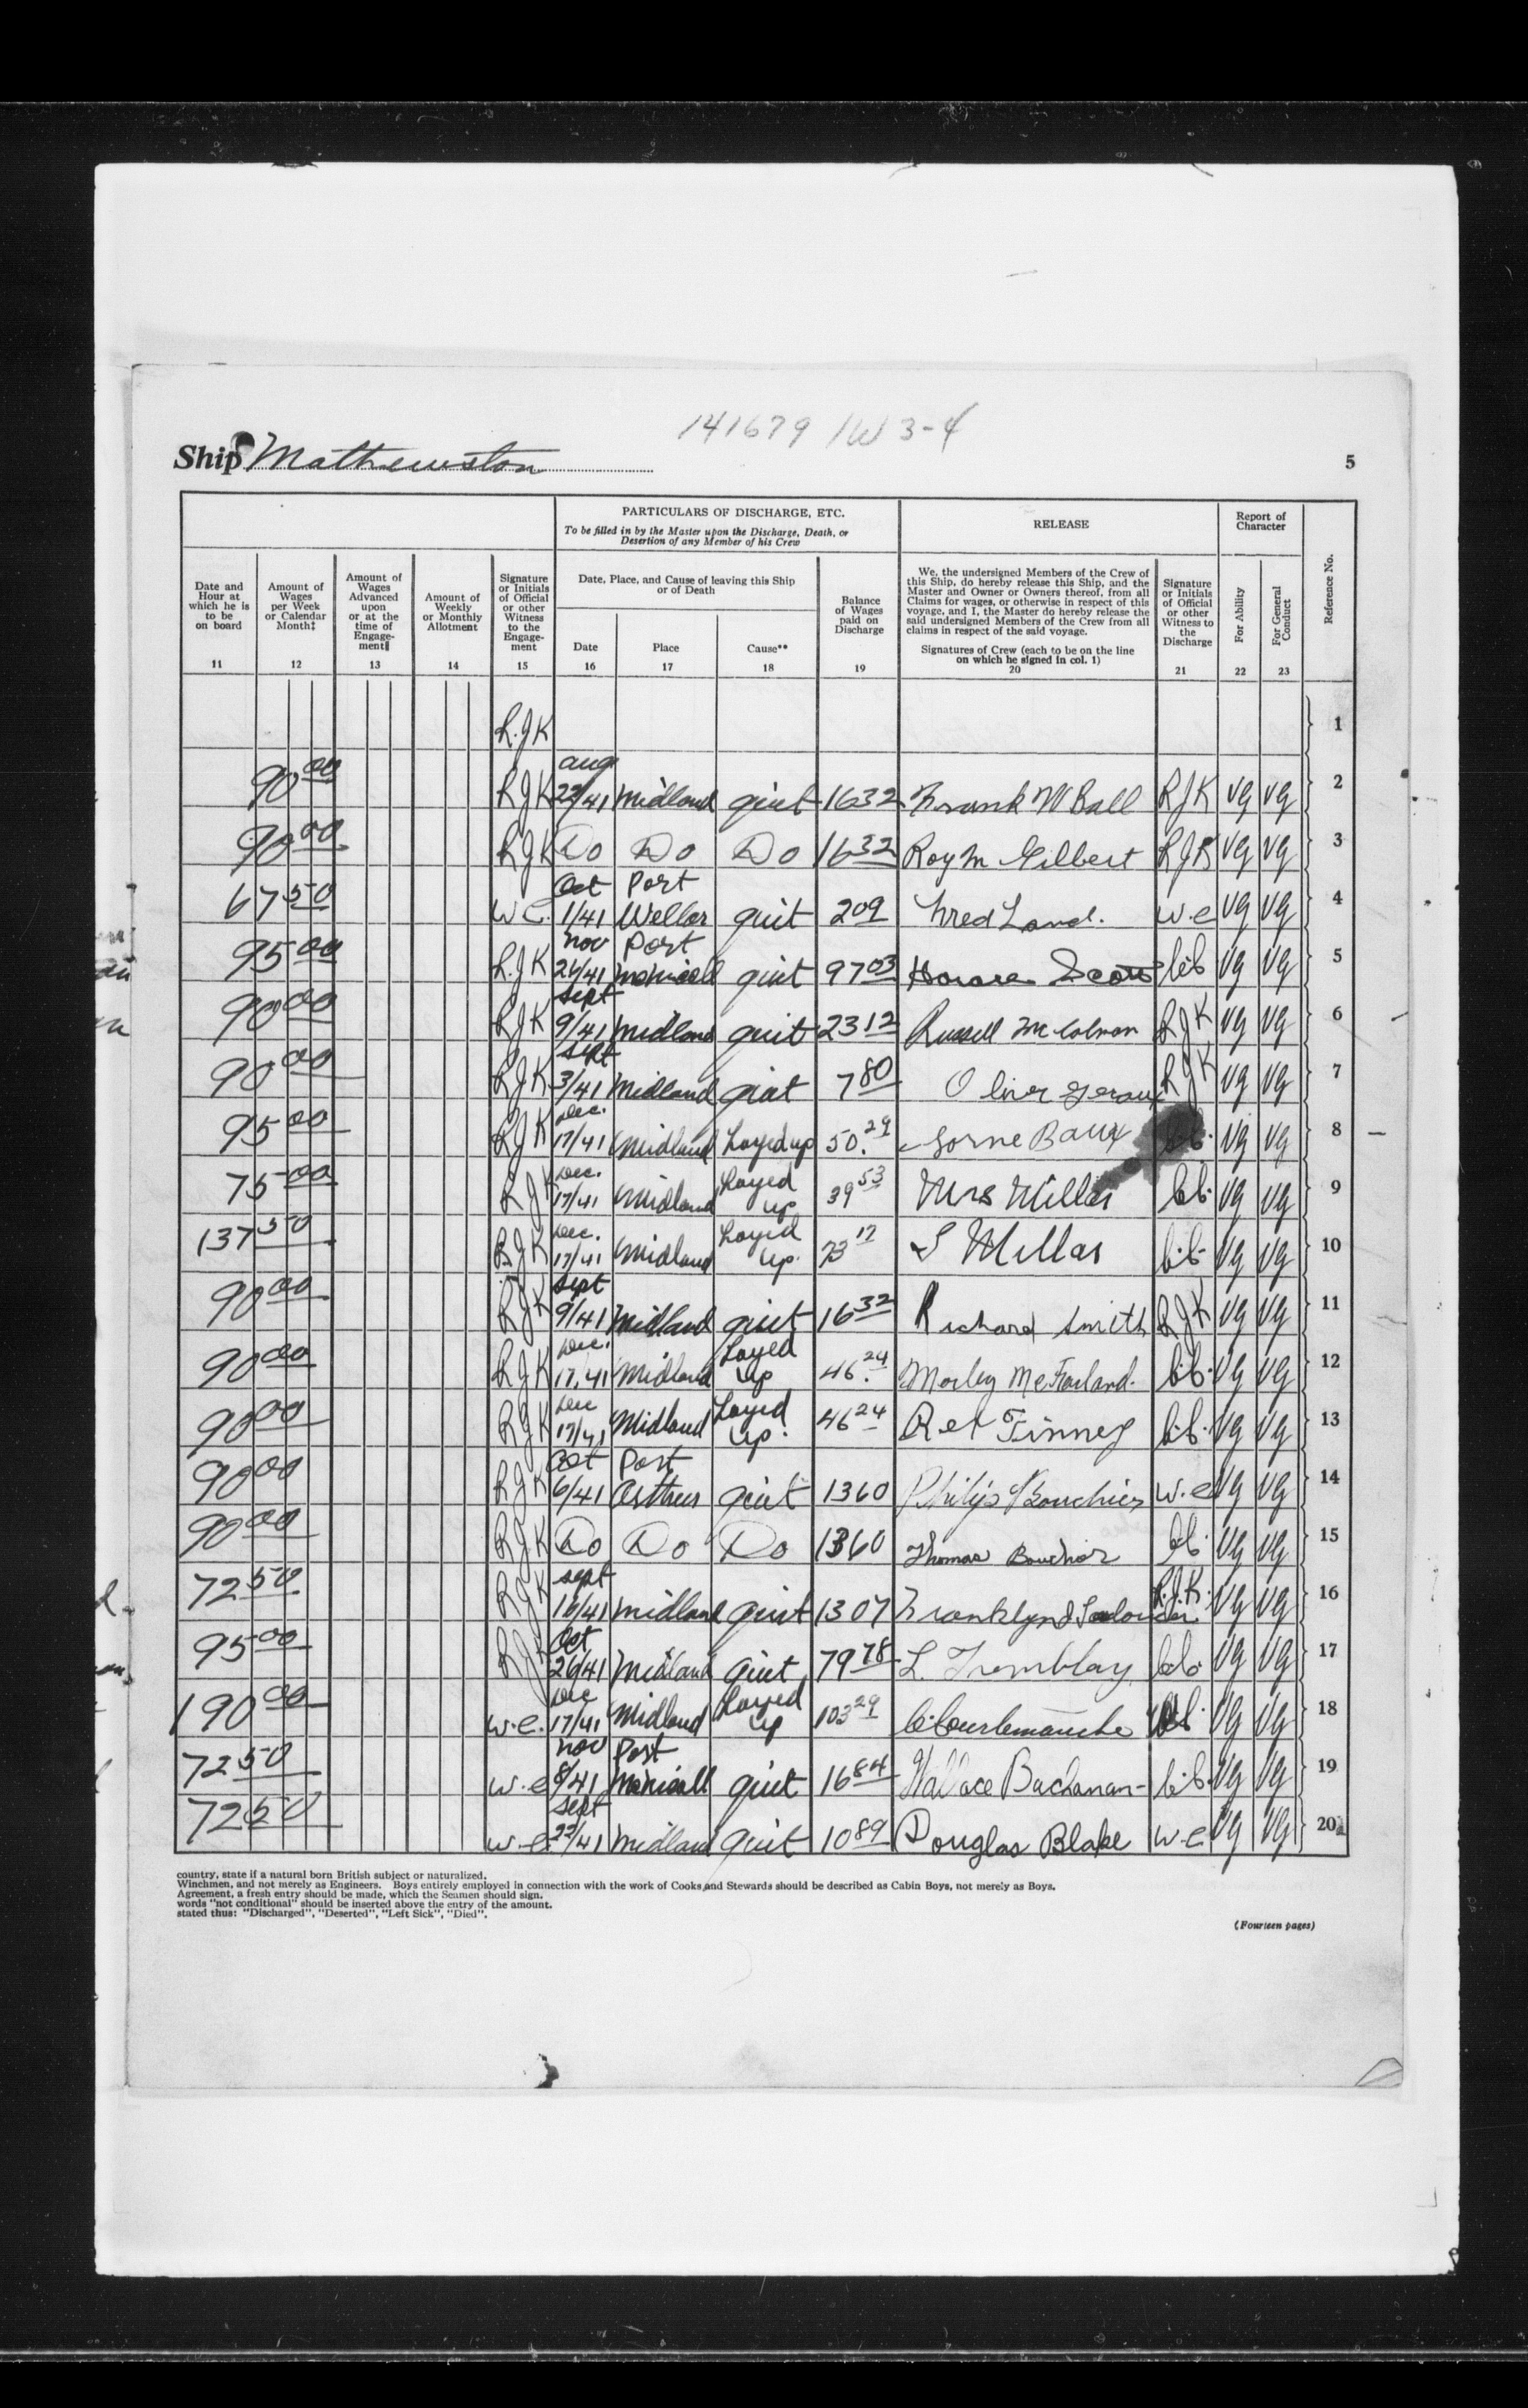 141679 1W 3-4
Ship Mathewston
5
PARTICULARS OF DISCHARGE, ETC.
To be filled in by the Master upon the Discharge, Death, or
Desertion of any Member of his Crew
RELEASE
Report of
Character
Reference No.
Date and
Hour at
which he is
to be
on board
11
Amount of
Wages
per Week
or Calendar
Month‡
12
Amount of
Wages
Advanced
upon
or at the
time of
Engage-
ment‖
13
Amount of
Weekly
or Monthly
Allotment
14
Signature
or Initials
of Official
or other
Witness
to the
Engage-
ment
15
Date, Place, and Cause of leaving this Ship
or of Death
Date
16
Place
17
Cause**
18
Balance
of Wages
paid on
Discharge
19
We, the undersigned Members of the Crew of
this Ship, do hereby release this Ship, and the
Master and Owner or Owners thereof, from all
Claims for wages, or otherwise in respect of this
voyage, and I, the Master do hereby release the
said undersigned Members of the Crew from all
claims in respect of the said voyage.
Signatures of Crew (each to be on the line
on which he signed in col. 1)
20
Signature
or Initials
of Official
or other
Witness to
the
Discharge
21
For Ability
22
For General
Conduct
23
R.J.K 1
90 00 RJK Aug 22/41 Midland quit 16 32 Frank W Ball RJK VG VG 2
90 00 RJK Do Do Do 16 32 Roy M Gilbert RJK VG VG 3
67 50 W C. Oct 1/41 Port Weller quit 2 09 Fred Land. W.C VG VG 4
95 00 R.J.K Nov 26/41 Port McNicoll quit 97 03 Horace Scott VG VG 5
90 00 RJK Sept 9/41 Midland quit 23 12 Russell RJK VG VG 6
90 00 RJK Sept 3/41 Midland quit 7 80 Oliver RJK VG VG 7
95 00 RJK Dec. 17/41 Midland Layed up 50.29 Lorne VG VG 8
75 00 RJK Dec. 17/41 Midland Layed up 39 53 Mrs Millar VG VG 9
137 50 RJK Dec. 17/41 Midland Layed up. 73 17 S Millar VG VG 10
90 00 RJK Sept 9/41 Midland quit 16 32 Richard Smith RJK VG VG 11
90 00 RJK Dec. 17/41 Midland Layed up 46.24 Morley McFarland. VG VG 12
90 00 RJK Dec 17/41 Midland Layed up. 46 24 Finney VG VG 13
90 00 RJK Oct 6/41 Port Arthur quit 13 60 Philip W.C VG VG 14
90 00 RJK Do Do Do 13 60 Thomas VG VG 15
72 50 RJK Sept 16/41 Midland quit 13 07 Franklyn R.J.K. VG VG 16
95 00 RJK Oct 26/41 Midland quit 79 78 L. Tremblay VG VG 17
190 00 W.C. Dec 17/41 Midland Layed up 103 29 C. Courtemanche VG VG 18
72 50 W.C Nov 8/41 Port McNicoll quit 16 84 Wallace Buchanan VG VG 19
72 50 W.C Sept 22/41 Midland quit 10 89 Douglas Blake W.C VG VG 20
country, state if a natural born British subject or naturalized.
Winchmen, and not merely as Engineers. Boys entirely employed in connection with the work of Cooks and Stewards should be described as Cabin Boys, not merely as Boys.
Agreement, a fresh entry should be made, which the Seamen should sign.
words "not conditional" should be inserted above the entry of the amount.
stated thus: "Discharged", "Deserted", "Left Sick", "Died".
(Fourteen pages)